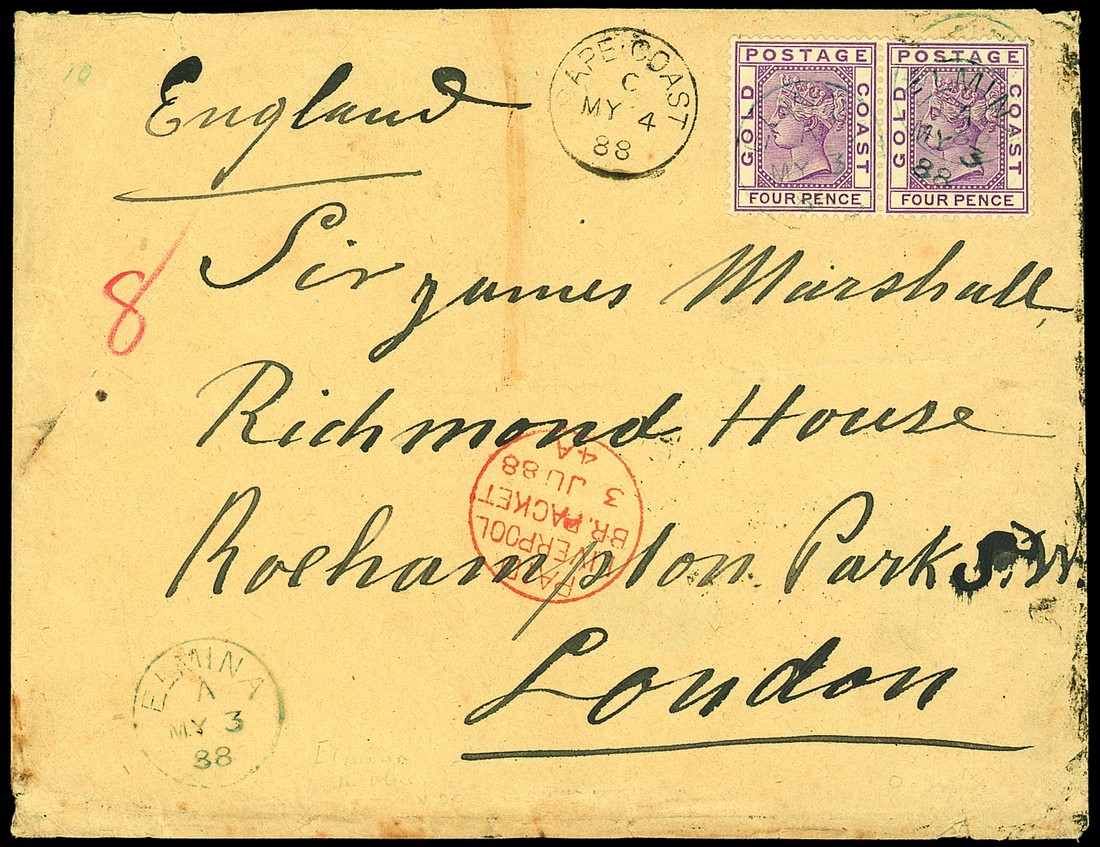 10
England
CAPE·COAST
C
MY 4
88
POSTAGE
GOLD COAST
FOUR PENCE
POSTAGE
GOLD COAST
FOUR PENCE
MY 3
ELMINA
A
MY 3
88
8
Sir James Marshall,
Richmond House
Roehampton Park S.W.
London
PAID
LIVERPOOL
BR. PACKET
3 JU 88
4 A
ELMINA
A
MY 3
88
Elmina